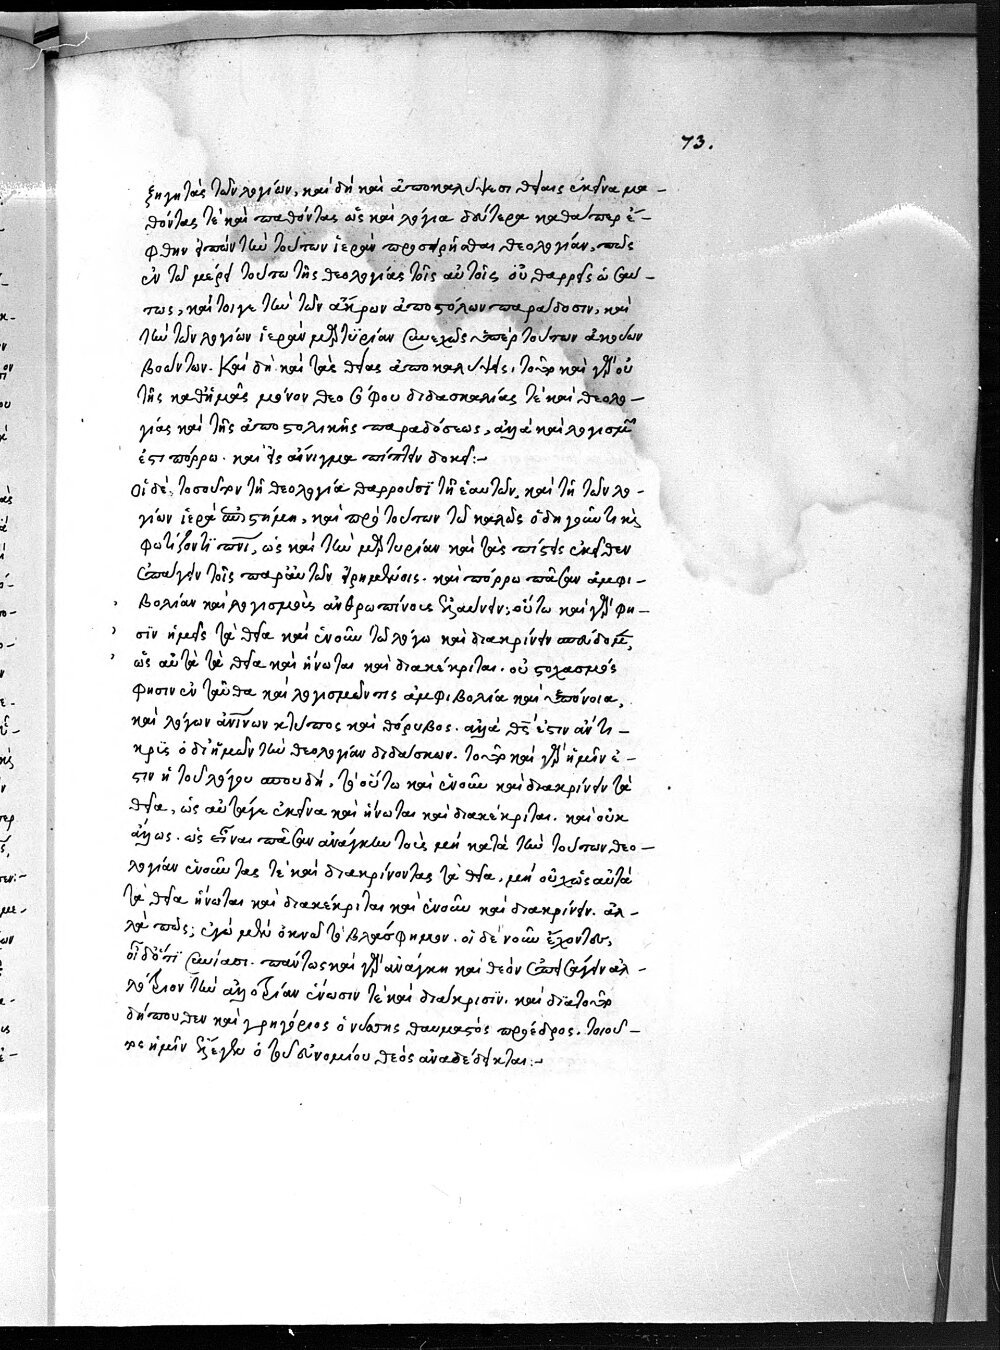 73.
ξηγητὰς τῶν λογίων, καὶ δὴ καὶ ἀποκαλύψεσι θείαις ἐκεῖνα μα-
θόντας τὲ καὶ παθόντας ὡς καὶ λόγια δεύτερα καθάπερ ἐ-
φθην εἰπὼν τὴν τούτων ἱερὰν προσειρῆσθαι θεολογίαν, πῶς
ἐν τῷ μέρει τούτῳ τῆς θεολογίας τοῖς αὐτοῖς οὐ θαρρεῖς
τως, καίτοιγε τὴν τῶν ἄκρων ἀποστόλων παράδοσιν, καὶ
τὴν τῶν λογίων ἱερὰν μαρτυρίαν συνεχῶς ὑπὲρ τούτων ἀκούων
βοώντων. Καὶ δὴ καὶ τὰς θείας ἀποκαλύψεις,
τῆς καθ' ἡμᾶς μόνον θεοσόφου διδασκαλίας τὲ καὶ θεολο-
γίας καὶ τῆς ἀποστολικῆς παραδόσεως, ἀλλὰ καὶ λογισμῶν
ἐστι πόρρω. καὶ εἰς αἴνιγμα πίπτειν δοκεῖ:-
Οἱ δὲ, τοσοῦτον τῇ θεολογίᾳ θαρροῦσι τῇ ἑαυτῶν, καὶ τῇ τῶν λο-
γίων ἱερᾷ ἐπιστήμῃ, καὶ πρὸ τούτων τῷ καλῶς ὁδηγοῦντι κ
φωτίζοντι πνι, ὡς καὶ τὴν μαρτυρίαν καὶ τὰς πίστεις ἐκεῖθεν
ἐπάγειν τοῖς παρ' αὐτῶν εἰρημένοις. καὶ πόρρω πᾶσαν ἀμφι-
βολίαν καὶ λογισμοὺς ἀνθρωπίνους ἐξελαύνειν; οὕτω καὶ γὰρ φη-
σὶν ἡμεῖς τὰ θεῖα καὶ ἑνοῦν τῷ λόγῳ καὶ διακρίνειν σπεύδομεν,
ὡς αὐτὰ τὰ θεῖα καὶ ἥνωται καὶ διακέκριται. οὐ στοχασμός
φησιν ἐνταῦθα καὶ λογισμῶν τις ἀμφιβολία καὶ ὑπόνοια,
καὶ λόγων ἀνίνων κτύπος καὶ θόρυβος. ἀλλὰ θς ἐστιν ἀντι-
κρὺς ὁ δι' ἡμῶν τὴν θεολογίαν διδάσκων. τοῦτο καὶ γὰρ ἡμῖν ἐ-
στιν ἡ τοῦ λόγου σπουδὴ, τὸ οὕτω καὶ ἑνοῦν καὶ διακρίνειν τὰ
θεῖα, ὡς αὐτάγε ἐκεῖνα καὶ ἥνωται καὶ διακέκριται. καὶ οὐκ
ἄλλως. ὡς εἶναι πᾶσαν ἀνάγκην τοὺς μὴ κατὰ τὴν τούτων θεο-
λογίαν ἑνοῦντας τὲ καὶ διακρίνοντας τὰ θεῖα, μὴ οὐχ ὡς αὐτὰ
τὰ θεῖα ἥνωται καὶ διακέκριται καὶ ἑνοῦν καὶ διακρίνειν. ἀλ-
λὰ πῶς; ἐγὼ μὲν ὀκνῶ τὸ βλάσφημον. οἱ δὲ νοῦν ἔχοντες,
οἶδ' ὅτι συνίασι. πάντως καὶ γὰρ ἀνάγκη καὶ θεὸν ἐπεισάγειν ἀλ-
λότριον τὴν ἀλλοτρίαν ἕνωσίν τε καὶ διάκρισιν. καὶ διατοῦτο
δήπουθεν καὶ γρηγόριος ὁ νύσσης θαυμαστὸς πρόεδρος. τοιοῦ-
τος ἡμῖν ἐξελέγχειν ὁ τοῦ εὐνομίου θεὸς ἀναδέδεικται:-